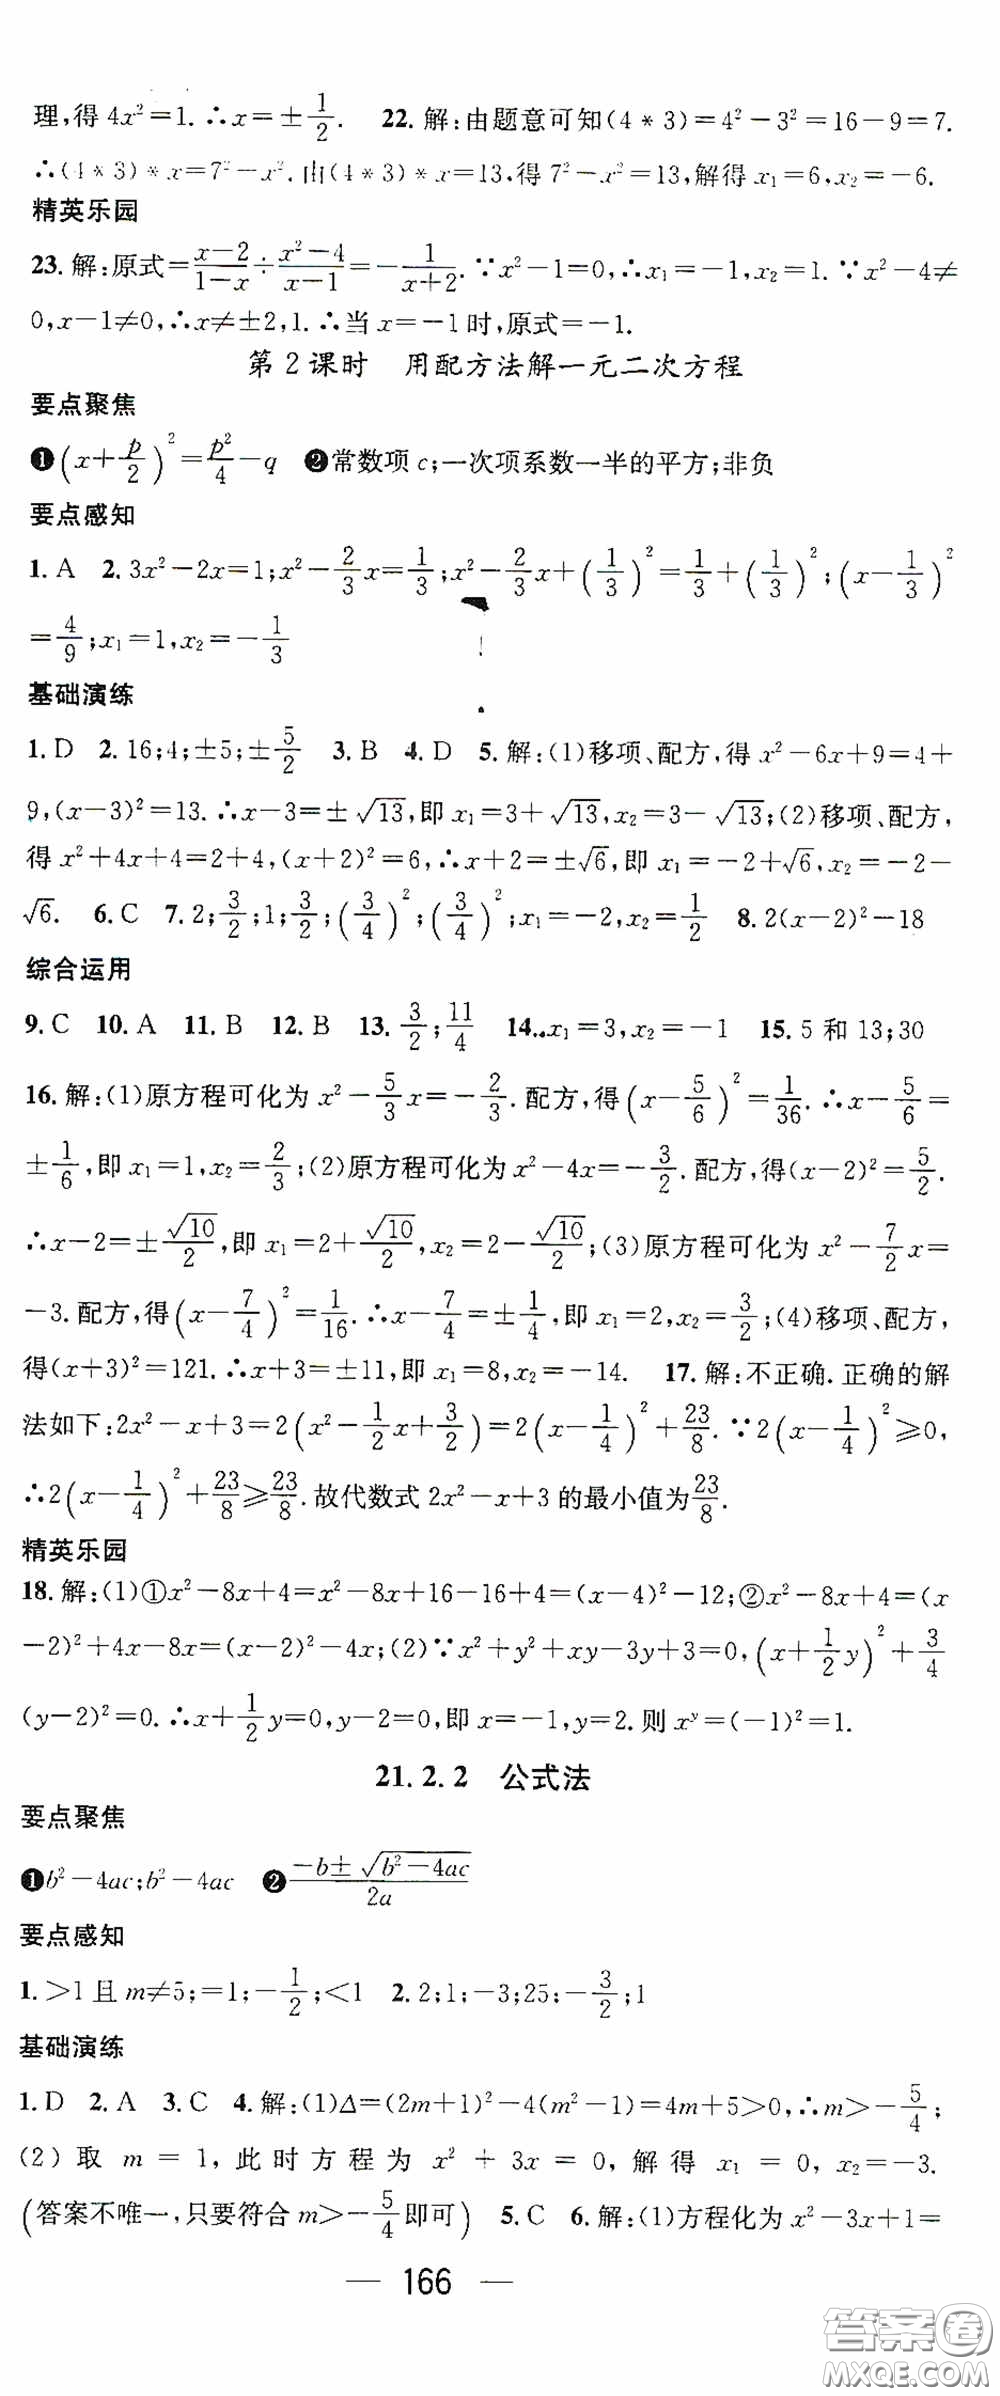 理,得 4x²=1. ∴x=±1/2. 22. 解:由题意可知(4*3)=4²-3²=16-9=7.
∴(4*3)*x=7²-x². 由(4*3)*x=13,得 7²-x²=13,解得 x₁=6,x₂=-6.
精英乐园
23. 解:原式=(x-2)/(1-x)÷(x²-4)/(x-1)=-1/(x+2). ∵x²-1=0,∴x₁=-1,x₂=1. ∵x²-4≠
0,x-1≠0,∴x≠±2,1. ∴当 x=-1 时,原式=-1.
第 2 课时 用配方法解一元二次方程
要点聚焦
❶(x+p/2)²=p²/4-q ❷常数项 c;一次项系数一半的平方;非负
要点感知
1. A 2. 3x²-2x=1;x²-2/3x=1/3;x²-2/3x+(1/3)²=1/3+(1/3)²;(x-1/3)²
=4/9;x₁=1,x₂=-1/3
基础演练
1. D 2. 16;4;±5;±5/2 3. B 4. D 5. 解:(1)移项、配方,得 x²-6x+9=4+
9,(x-3)²=13. ∴x-3=±√13,即 x₁=3+√13,x₂=3-√13;(2)移项、配方,
得 x²+4x+4=2+4,(x+2)²=6,∴x+2=±√6,即 x₁=-2+√6,x₂=-2-
√6. 6. C 7. 2;3/2;1;3/2;(3/4)²;(3/4)²;x₁=-2,x₂=1/2 8. 2(x-2)²-18
综合运用
9. C 10. A 11. B 12. B 13. 3/2;11/4 14. x₁=3,x₂=-1 15. 5 和 13;30
16. 解:(1)原方程可化为 x²-5/3x=-2/3. 配方,得(x-5/6)²=1/36. ∴x-5/6=
±1/6,即 x₁=1,x₂=2/3;(2)原方程可化为 x²-4x=-3/2. 配方,得(x-2)²=5/2.
∴x-2=±√10/2,即 x₁=2+√10/2,x₂=2-√10/2;(3)原方程可化为 x²-7/2x=
-3. 配方,得(x-7/4)²=1/16. ∴x-7/4=±1/4,即 x₁=2,x₂=3/2;(4)移项、配方,
得(x+3)²=121. ∴x+3=±11,即 x₁=8,x₂=-14. 17. 解:不正确. 正确的解
法如下:2x²-x+3=2(x²-1/2x+3/2)=2(x-1/4)²+23/8. ∵2(x-1/4)²≥0,
∴2(x-1/4)²+23/8≥23/8. 故代数式 2x²-x+3 的最小值为23/8.
精英乐园
18. 解:(1)①x²-8x+4=x²-8x+16-16+4=(x-4)²-12;②x²-8x+4=(x
-2)²+4x-8x=(x-2)²-4x;(2)∵x²+y²+xy-3y+3=0,(x+1/2y)²+3/4
(y-2)²=0. ∴x+1/2y=0,y-2=0,即 x=-1,y=2. 则 xʸ=(-1)²=1.
21. 2. 2 公式法
要点聚焦
❶b²-4ac;b²-4ac ❷(-b±√(b²-4ac))/2a
要点感知
1. >1 且 m≠5;=1;-1/2;<1 2. 2;1;-3;25;-3/2;1
基础演练
1. D 2. A 3. C 4. 解:(1)Δ=(2m+1)²-4(m²-1)=4m+5>0,∴m>-5/4;
(2) 取 m = 1, 此时方程为 x² + 3x = 0, 解得 x₁ = 0, x₂=-3.
(答案不唯一,只要符合 m>-5/4即可) 5. C 6. 解:(1)方程化为 x²-3x+1=
— 166 —
答案圈
MXQE.COM